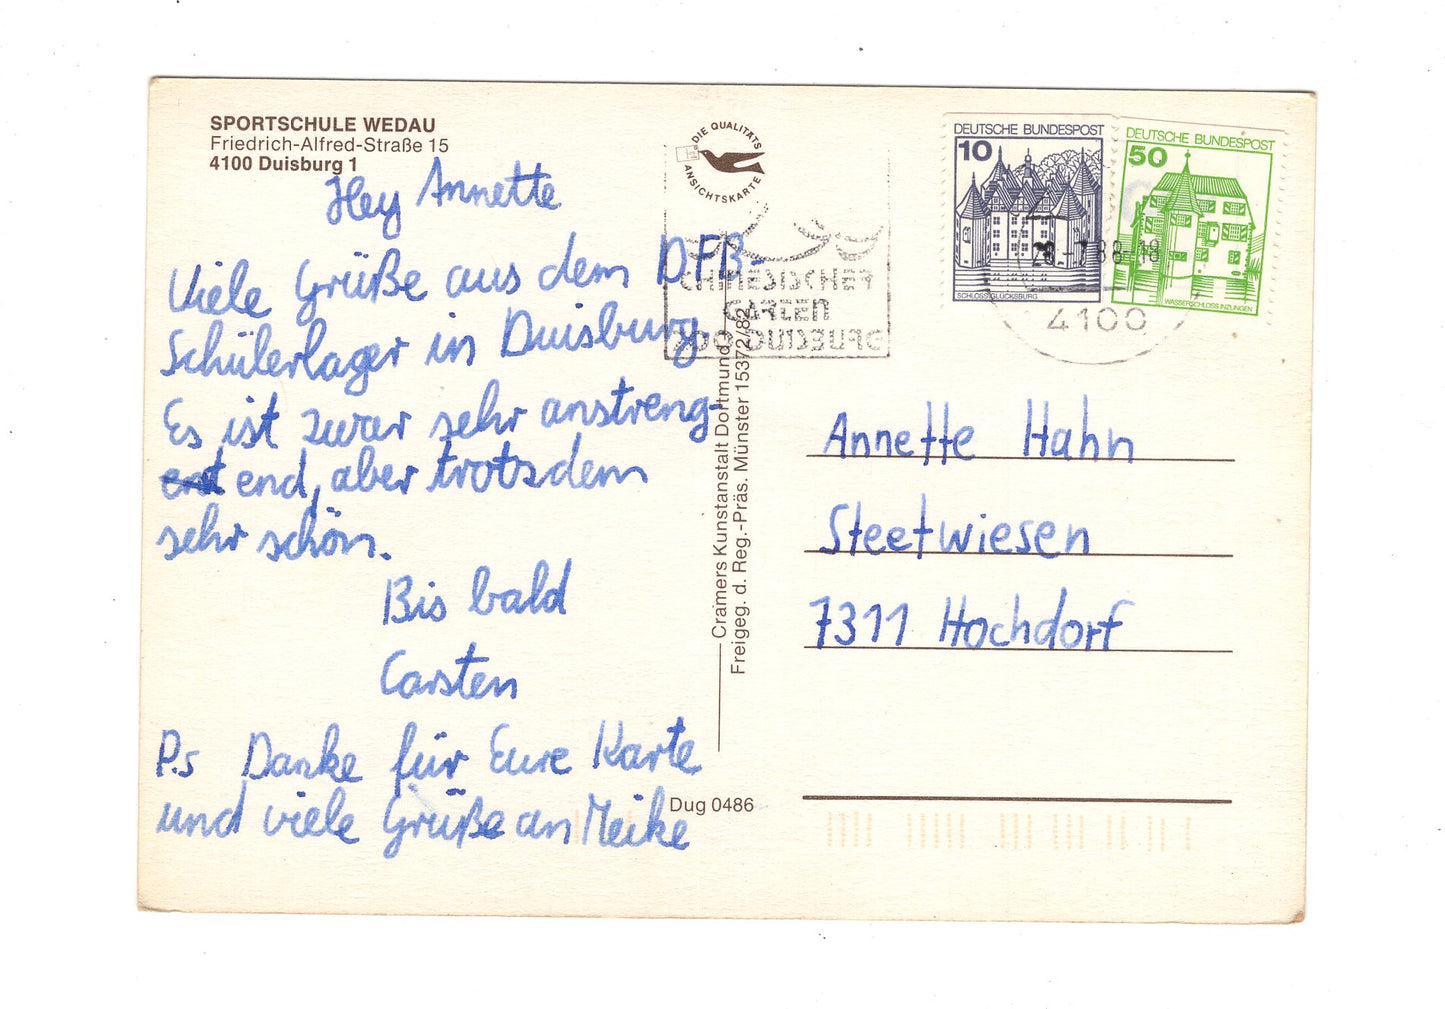 SPORTSCHULE WEDAU
Friedrich-Alfred-Straße 15
4100 Duisburg 1
Hey Annette
Viele Grüße aus dem D.F.B-
Schülerlager in Duisburg.
Es ist zwar sehr anstreng-
end, aber trotsdem
sehr schön.
Bis bald
Carsten
P.s Danke für Eure Karte
und viele Grüße an Meike
DIE QUALITÄTS
ANSICHTSKARTE
CHINESISCHER
GARTEN
ZOO DUISBURG
Cramers Kunstanstalt Dortmund
Freigeg. d. Reg.-Präs. Münster 15372/82
Dug 0486
DEUTSCHE BUNDESPOST
10
SCHLOSS GLÜCKSBURG
DEUTSCHE BUNDESPOST
50
WASSERSCHLOSS INZLINGEN
28.-7.88-18
4100
Annette Hahn
Steetwiesen
7311 Hochdorf